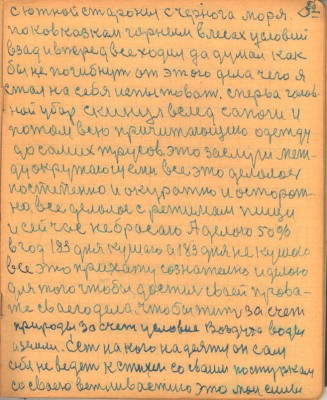 с ютной стороны с чернога моря. 52
по ковказкам горным в лесах условий
взад и вперед все ходил да думал как
бы не погибнуть от этого дела чего я
стал на себя испытоват. сперва голов-
ной убор скинул вслед сапоги и
потом всю причитающию одежду
до самих трусов. это заслуги меж-
ду окружающеми все это делалос
постепенно и окуратно и осторож-
но. все делалос с режимам пищи
и сейчас не бросаю А делою 50%
в год 183 дня кушаю а 183 дня не кушаю
все это прихоту сознателно и делою
для того чтобы достич своей прова-
те своего дела. чтобы жить за счет
природы за счет условие воздуха воды
и земли. Ест на кого надеятц он сам
себя не ведет к стихии со своим поступкам
со своего вежливостию это мои силы